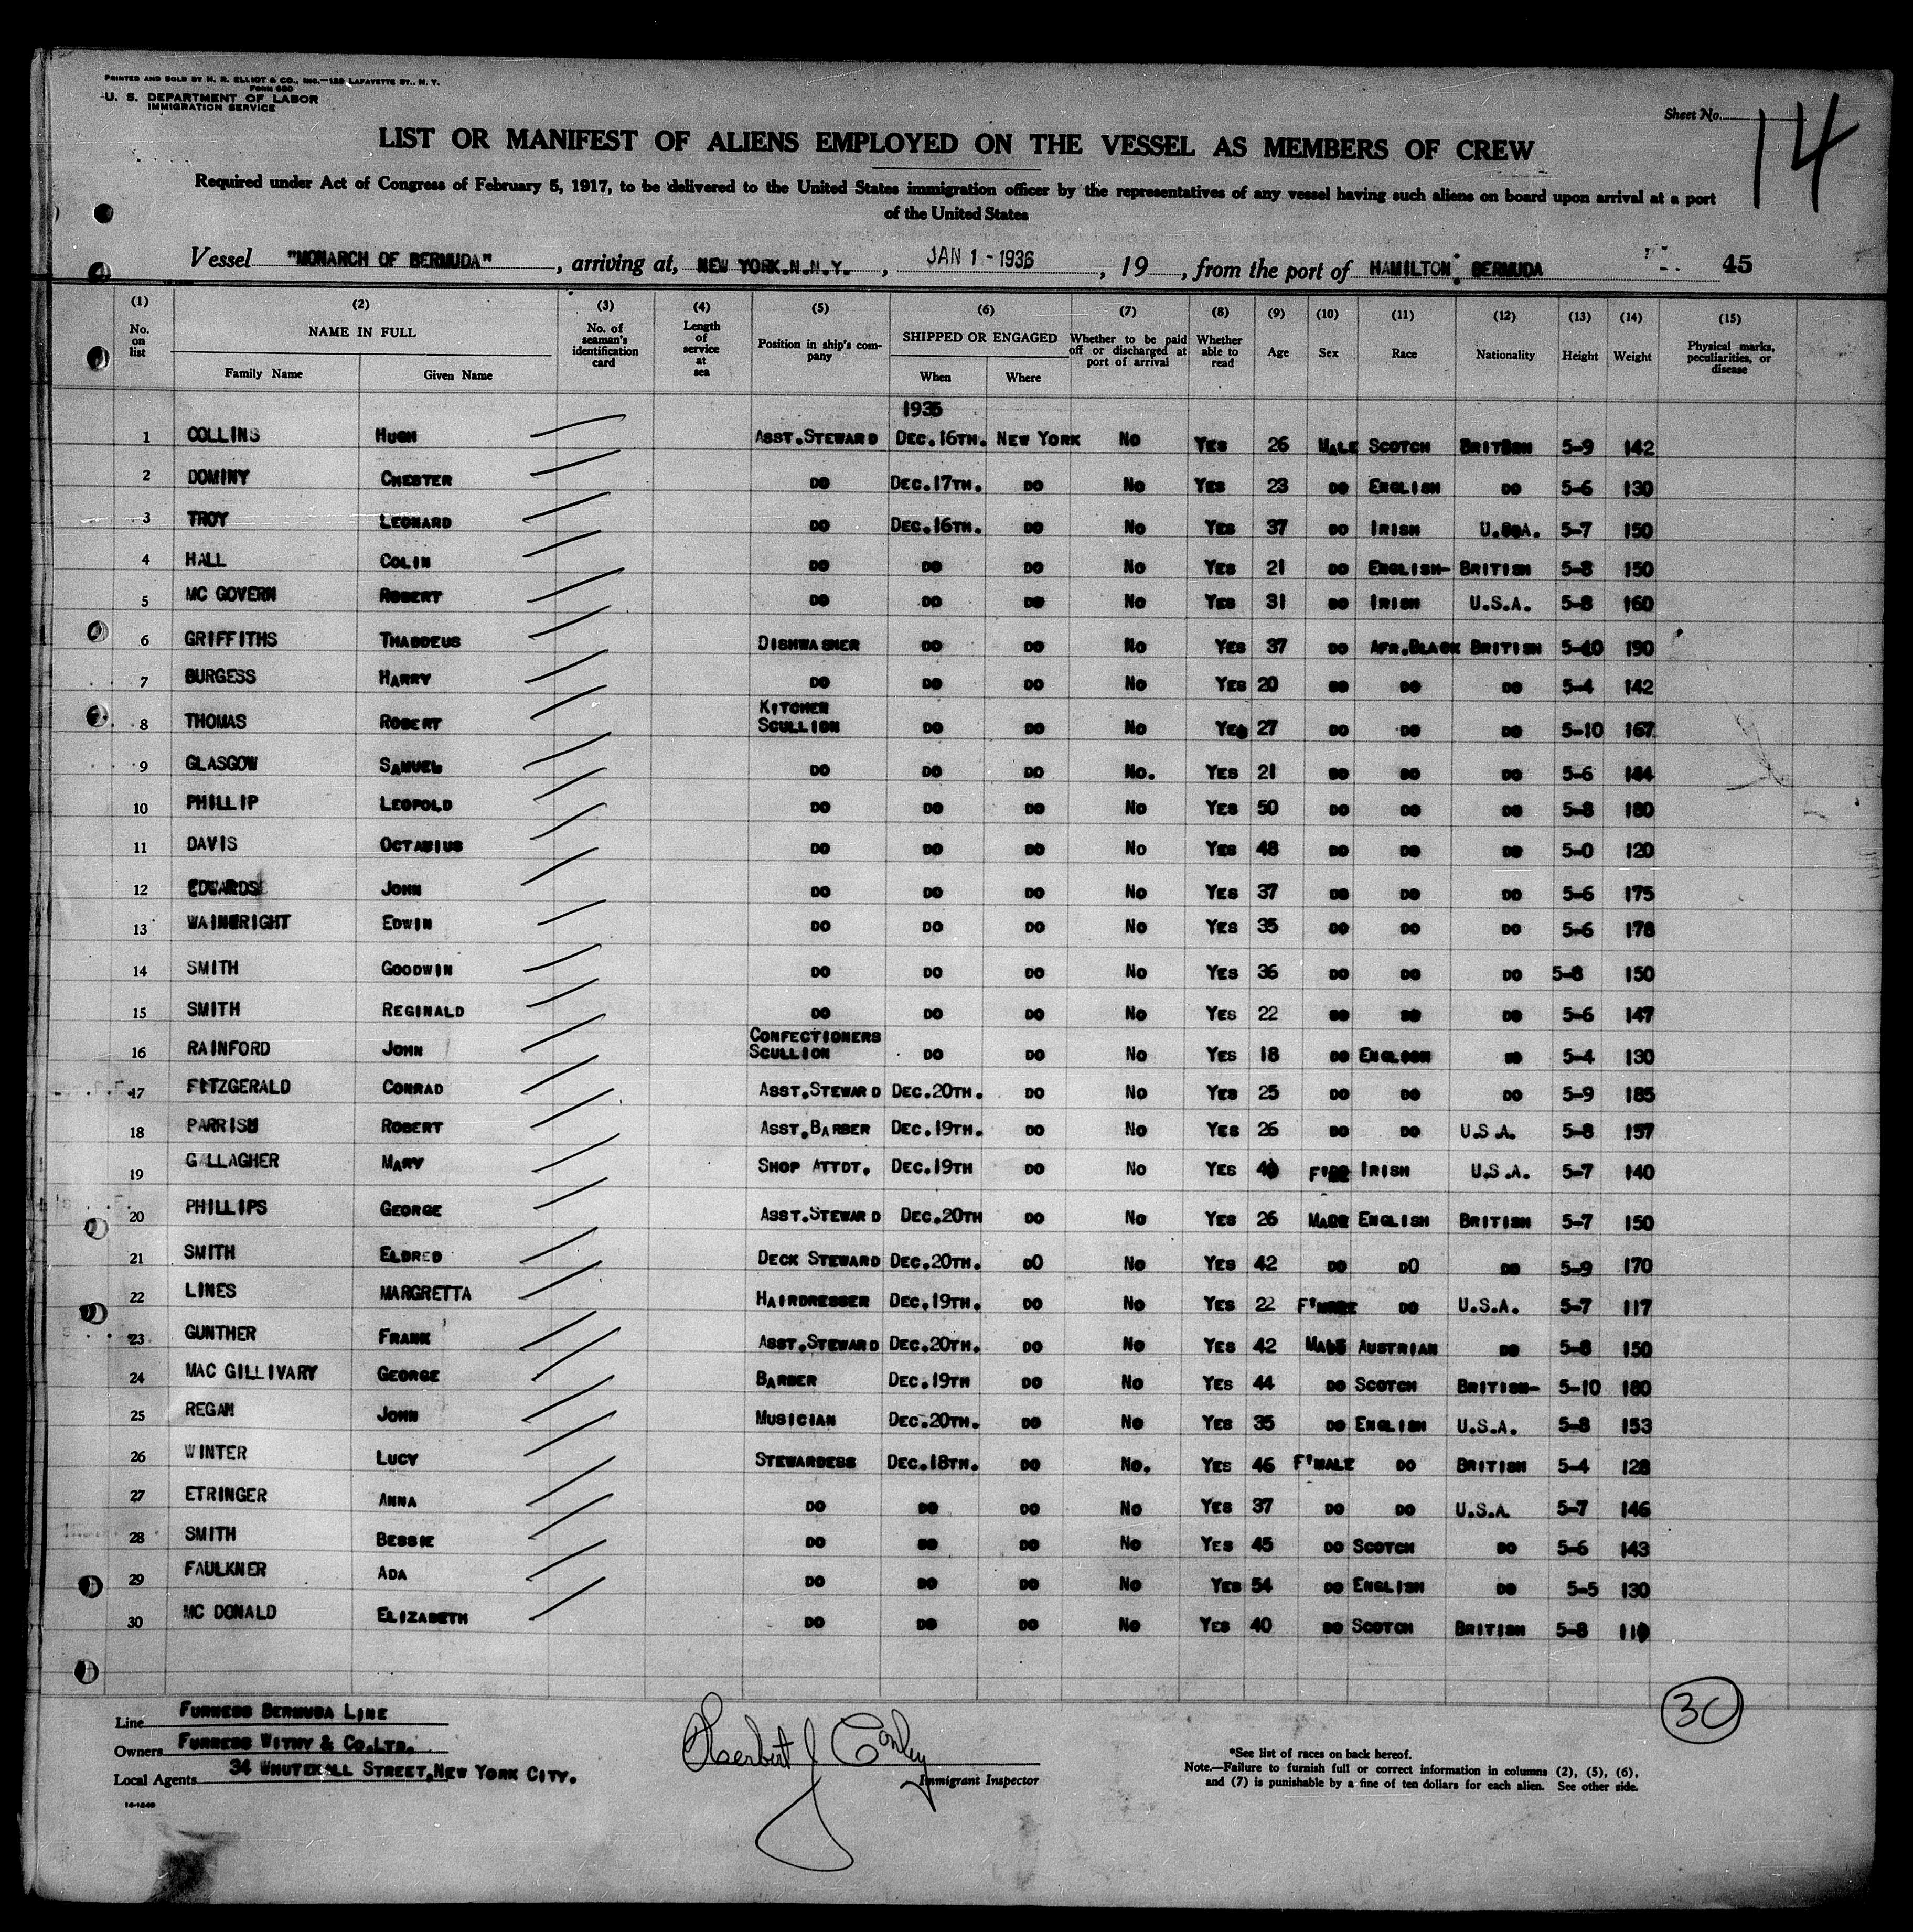 PRINTED AND SOLD BY H. R. ELLIOT & CO., INC.—129 LAFAYETTE ST., N. Y.
FORM 680
U. S. DEPARTMENT OF LABOR
IMMIGRATION SERVICE
Sheet No. 14
LIST OR MANIFEST OF ALIENS EMPLOYED ON THE VESSEL AS MEMBERS OF CREW
Required under Act of Congress of February 5, 1917, to be delivered to the United States immigration officer by the representatives of any vessel having such aliens on board upon arrival at a port
of the United States
Vessel "MONARCH OF BERMUDA", arriving at, NEW YORK.N.N.Y., JAN 1 - 1936, 19, from the port of HAMILTON, BERMUDA 45
(1) (2) (3) (4) (5) (6) (7) (8) (9) (10) (11) (12) (13) (14) (15)
No. on list NAME IN FULL Family Name Given Name No. of seaman's identification card Length of service at sea Position in ship's company SHIPPED OR ENGAGED When Where Whether to be paid off or discharged at port of arrival Whether able to read Age Sex Race Nationality Height Weight Physical marks, peculiarities, or disease
1935
1 COLLINS HUGH ASST.STEWARD DEC.16TH. NEW YORK NO YES 26 MALE SCOTCH 5-9 142
2 DOMINY CHESTER DO DEC.17TH. DO NO YES 23 DO ENGLISH DO 5-6 130
3 TROY LEONARD DO DEC.16TH. DO NO YES 37 DO IRISH U.S.A. 5-7 150
4 HALL COLIN DO DO DO NO YES 21 DO ENGLISH- BRITISH 5-8 150
5 MC GOVERN ROBERT DO DO DO NO YES 31 DO IRISH U.S.A. 5-8 160
6 GRIFFITHS THADDEUS DISHWASHER DO DO NO YES 37 DO AFR.BLACK BRITISH 5-10 190
7 BURGESS HARRY DO DO DO NO YES 20 DO DO DO 5-4 142
8 THOMAS ROBERT KITCHEN SCULLION DO DO NO YES 27 DO DO DO 5-10 167
9 GLASGOW SAMUEL DO DO DO NO. YES 21 DO DO DO 5-6 144
10 PHILLIP LEOPOLD DO DO DO NO YES 50 DO DO DO 5-8 180
11 DAVIS OCTAVIUS DO DO DO NO YES 48 DO DO DO 5-0 120
12 EDWARDS JOHN DO DO DO NO YES 37 DO DO DO 5-6 175
13 WAINWRIGHT EDWIN DO DO DO NO YES 35 DO DO DO 5-6 178
14 SMITH GOODWIN DO DO DO NO YES 36 DO DO DO 5-8 150
15 SMITH REGINALD DO DO DO NO YES 22 DO DO DO 5-6 147
16 RAINFORD JOHN CONFECTIONERS SCULLION DO DO NO YES 18 DO ENGLISH DO 5-4 130
17 FITZGERALD CONRAD ASST.STEWARD DEC.20TH. DO NO YES 25 DO DO DO 5-9 185
18 PARRISH ROBERT ASST.BARBER DEC.19TH. DO NO YES 26 DO DO U.S.A. 5-8 157
19 GALLAGHER MARY SHOP ATTDT. DEC.19TH DO NO YES IRISH U.S.A. 5-7 140
20 PHILLIPS GEORGE ASST.STEWARD DEC.20TH DO NO YES 26 MALE ENGLISH BRITISH 5-7 150
21 SMITH ELDRED DECK STEWARD DEC.20TH. DO NO YES 42 DO DO DO 5-9 170
22 LINES MARGRETTA HAIRDRESSER DEC.19TH. DO NO YES 22 F'MALE DO U.S.A. 5-7 117
23 GUNTHER FRANK ASST.STEWARD DEC.20TH. DO NO YES 42 MALE AUSTRIAN DO 5-8 150
24 MAC GILLIVARY GEORGE BARBER DEC.19TH DO NO YES 44 DO SCOTCH BRITISH- 5-10 180
25 REGAN JOHN MUSICIAN DEC.20TH. DO NO YES 35 DO ENGLISH U.S.A. 5-8 153
26 WINTER LUCY STEWARDESS DEC.18TH. DO NO. YES 46 F'MALE DO BRITISH 5-4 128
27 ETRINGER ANNA DO DO DO NO YES 37 DO DO U.S.A. 5-7 146
28 SMITH BESSIE DO DO DO NO YES 45 DO SCOTCH DO 5-6 143
29 FAULKNER ADA DO DO DO NO YES 54 DO ENGLISH DO 5-5 130
30 MC DONALD ELIZABETH DO DO DO NO YES 40 DO SCOTCH BRITISH 5-8
30
Line FURNESS BERMUDA LINE
Owners FURNESS WITHY & CO.LTD.
Local Agents 34 WHITEHALL STREET,NEW YORK CITY.
Herbert J Conley
Immigrant Inspector
*See list of races on back hereof.
Note.—Failure to furnish full or correct information in columns (2), (5), (6),
and (7) is punishable by a fine of ten dollars for each alien. See other side.